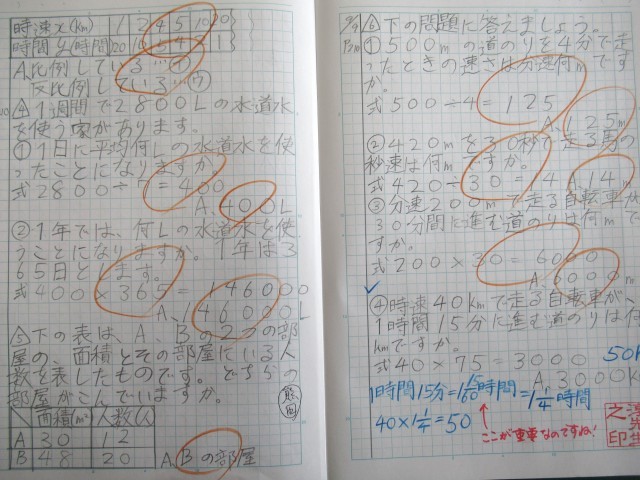 時速x(km) 1 2 4 5 10 20
時間y(時間) 20 10 5 4 2 1
A.比例している…
反比例している…
④1週間で2800Lの水道水
を使う家があります。
①1日に平均何Lの水道水を使
ったことになりますか。
式2800÷7=400
A,400L
②1年では、何Lの水道水を使
うことになりますか。1年は3
65日とします。
式400×365=146000
A,146000L
⑤下の表は、A、Bの2つの部
屋の、面積とその部屋にいる人
数を表したものです。どちらの
部屋がこんでいますか。
面積(m²) 人数(人)
A 30 12
B 48 20
A,Bの部屋
⑥下の問題に答えましょう。
①500mの道のりを4分で走
ったときの速さは分速何mです
か。
式500÷4=125
A,125m
②420mを30秒で走る馬の
秒速は何mですか。
式420÷30=14 A,14m
③分速200mで走る自転車が
30分間に進む道のりは何mで
すか。
式200×30=6000
A,6000m
④時速40kmで走る自転車が、
1時間15分に進む道のりは何
kmですか。
式40×75=3000 50k
A,3000k
1時間15分=1 15/60時間=1 1/4時間
40×1 1/4=50
ここが重要なのですね!